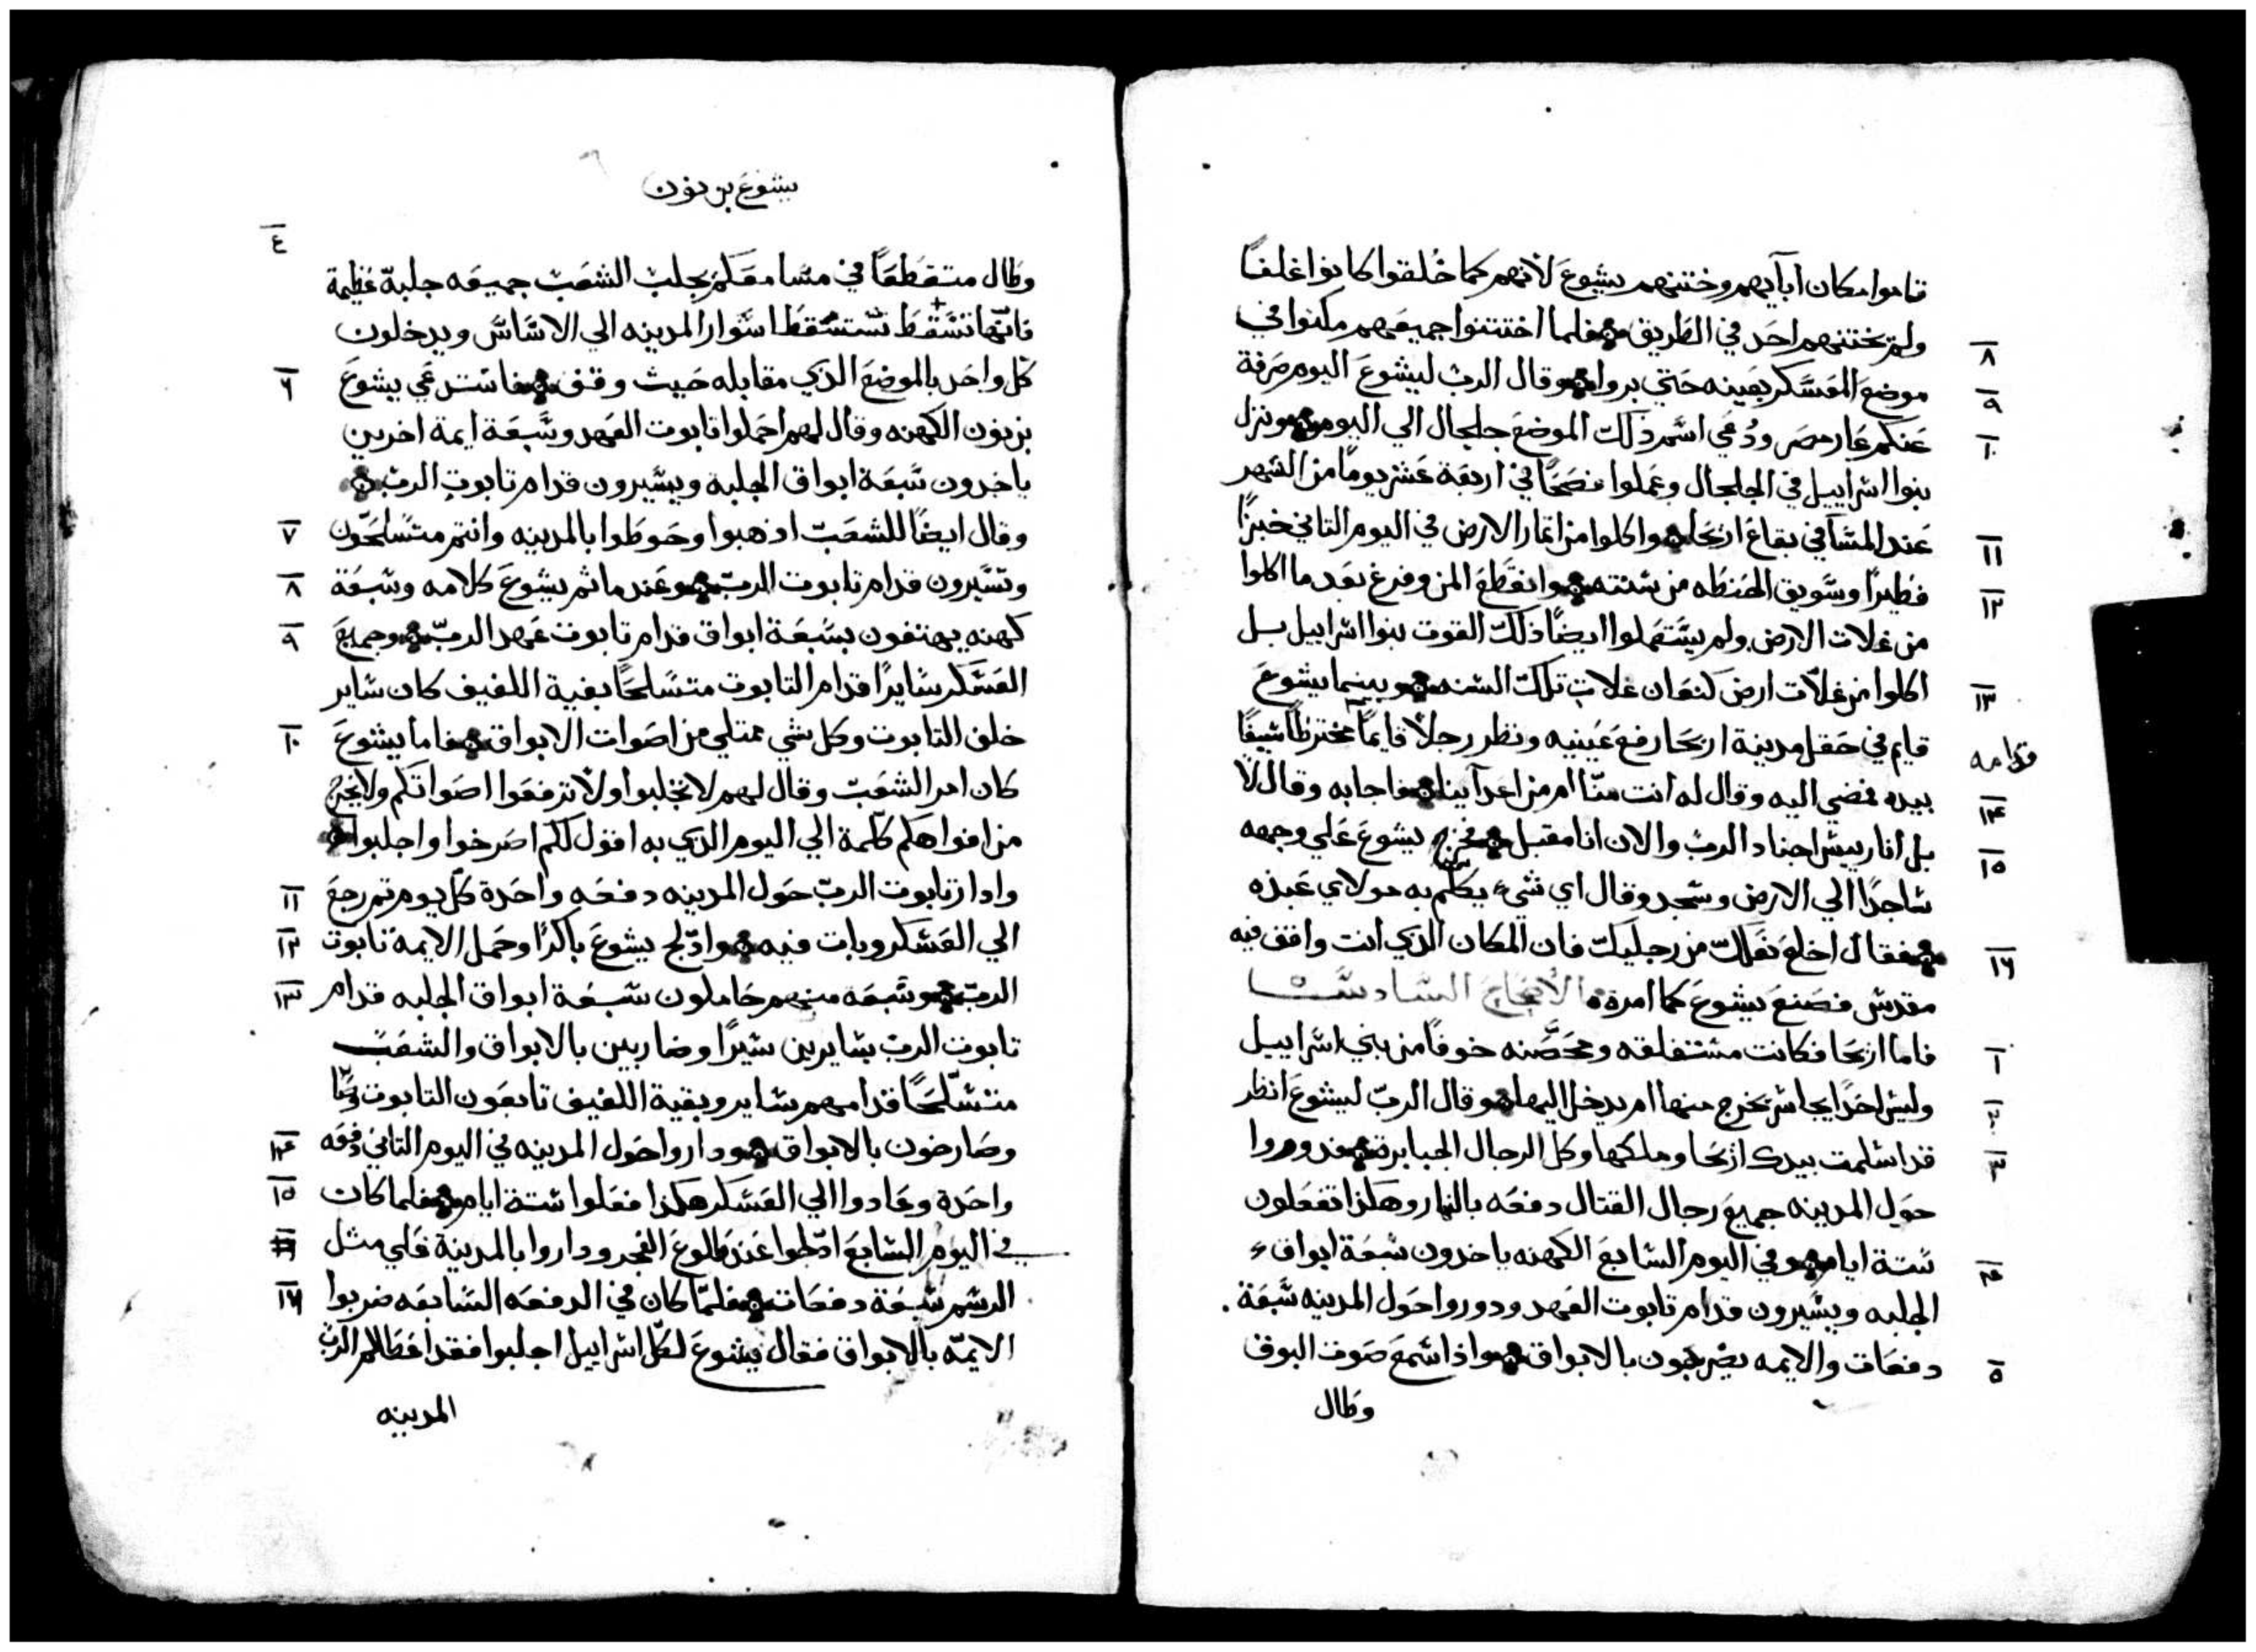 قاموا مكان ابآيهم وختنهم يشوع لأنهم كما خُلقوا كانوا غلفاً
ولم يختنهم احد في الطريق فلما اختتنوا جميعهم مكثوا في
٨
موضع المعسكر بعينه حتي بروا وقال الرب ليشوع اليوم صرفة
٩
عنكم عار مصر ودُعي اسم ذلك الموضع جلجال الي اليوم ونزل
١٠
بنوا اسراييل في الجلجال وعملوا فصحاً في اربعة عشر يوماً من الشهر
عند المسآ في بقاع اريحا واكلوا من اثمار الارض في اليوم الثاني خبزاً
١١
فطيراً وسويق الحنطه من سنته وانقطع المن وفرغ بعد ما اكلوا
١٢
من غلات الارض ولم يستعملوا ايضاً ذلك القوت بنوا اسراييل بل
اكلوا من غلات ارض كنعان غلات تلك السنه وبينما يشوع
١٣
قايم في حقل مدينة اريحا رفع عينيه ونظر رجلاً قايماً مخترطاً سيفاً
قدامه
بيده فمضي اليه وقال له أنت منّا ام من اعدآينا فاجابه وقال لا
١٤
بل أنا رييس اجناد الرب والان انا مقبل فخر يشوع علي وجهه
١٥
ساجداً الي الارض وسجد وقال اي شيء يكلم به مولاي عبده
فقال اخلع نعلك من رجليك فان المكان الذي أنت واقف فيه
١٦
مقدس فصنع يشوع كما امره الأصحاح السادس
فاما اريحا فكانت مستغلقه ومحصّنه خوفاً من بني اسراييل
١
وليس احداً يجاسر يخرج منها ام يدخل اليها وقال الربّ ليشوع انظر
٢
قد اسلمت بيدك اريحا وملكها وكل الرجال الجبابرة فدوروا
٣
حول المدينه جميع رجال القتال دفعه بالنهار وهكذا تفعلون
ستة ايام وفي اليوم السابع الكهنه ياخدون سبعة ابواق
٤
الجلبه ويسيرون قدام تابوت العهد ودوروا حول المدينه سبعة
دفعات والايمه يضربون بالابواق واذا سمع صوت البوق
٥
وطال
يشوع بن نون
٤
وطال متقطعاً في مسامعكم يجلب الشعب جميعه جلبةً عظيمة
فانّها تسقط تستسقط اسوار المدينه الي الاساس ويدخلون
كل واحد بالموضع الذي مقابله حيث وقف فاستدعي يشوع
٦
بن نون الكهنه وقال لهم احملوا تابوت العهد وسبعة ايمة اخرين
ياخدون سبعة ابواق الجلبه ويسيرون قدام تابوت الرب
وقال ايضاً للشعب اذهبوا وحوطوا بالمدينه وانتم متسلحون
٧
وتسيرون قدام تابوت الربّ وعندما تم يشوع كلامه وسبعة
٨
كهنه يهتفون بسبعة ابواق قدام تابوت عهد الربّ وجميع
٩
العسكر سايراً قدام التابوت متسلحاً بقية اللفيف كان ساير
خلف التابوت وكل شي ممتلي من اصوات الابواق فاما يشوع
١٠
كان امر الشعب وقال لهم لا تجلبوا ولا ترفعوا اصواتكم ولا يخرج
من افواهكم كلمة الي اليوم الذي به اقول لكم اصرخوا واجلبوا
وادار تابوت الربّ حول المدينه دفعه واحدة كل يوم ثم رجع
١١
الي العسكر وبات فيه وادّلج يشوع باكراً وحمل الايمة تابوت
١٢
الرب وسبعه منهم حاملون سبعة ابواق الجلبه قدام
١٣
تابوت الرب سايرين سيراً وضاربين بالابواق والشعب
متسلحاً قدامهم ساير وبقية اللفيف تابعون التابوت
وصارخون بالابواق وداروا حول المدينه في اليوم الثاني دفعه
١٤
واحدة وعادوا الي العسكر هكذا فعلوا ستة ايام فلما كان
١٥
في اليوم السابع ادّلجوا عند طلوع الفجر وداروا بالمدينة علي مثل
الرسم سبعة دفعات فلمّا كان في الدفعه السابعه ضربوا
١٦
الايمّه بالابواق فقال يشوع لكل اسراييل اجلبوا فقد اعطاكم الرب
المدينه